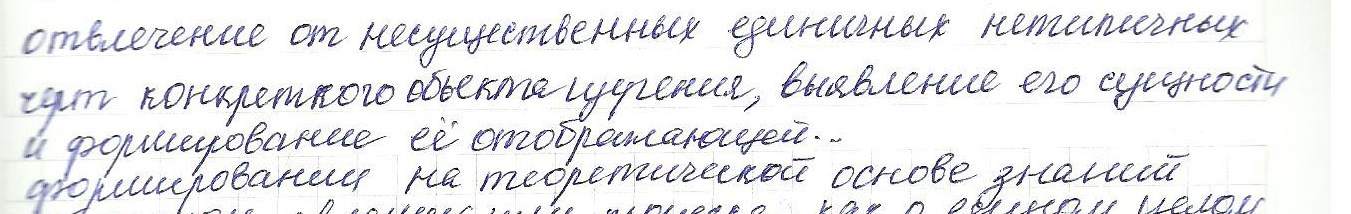 отвлечение от несущественных единичных нетипичных
черт конкретного объекта изучения, выявление его сущности
и формирование её отображающей...
формировании на теоретической основе знаний
как о едином целом